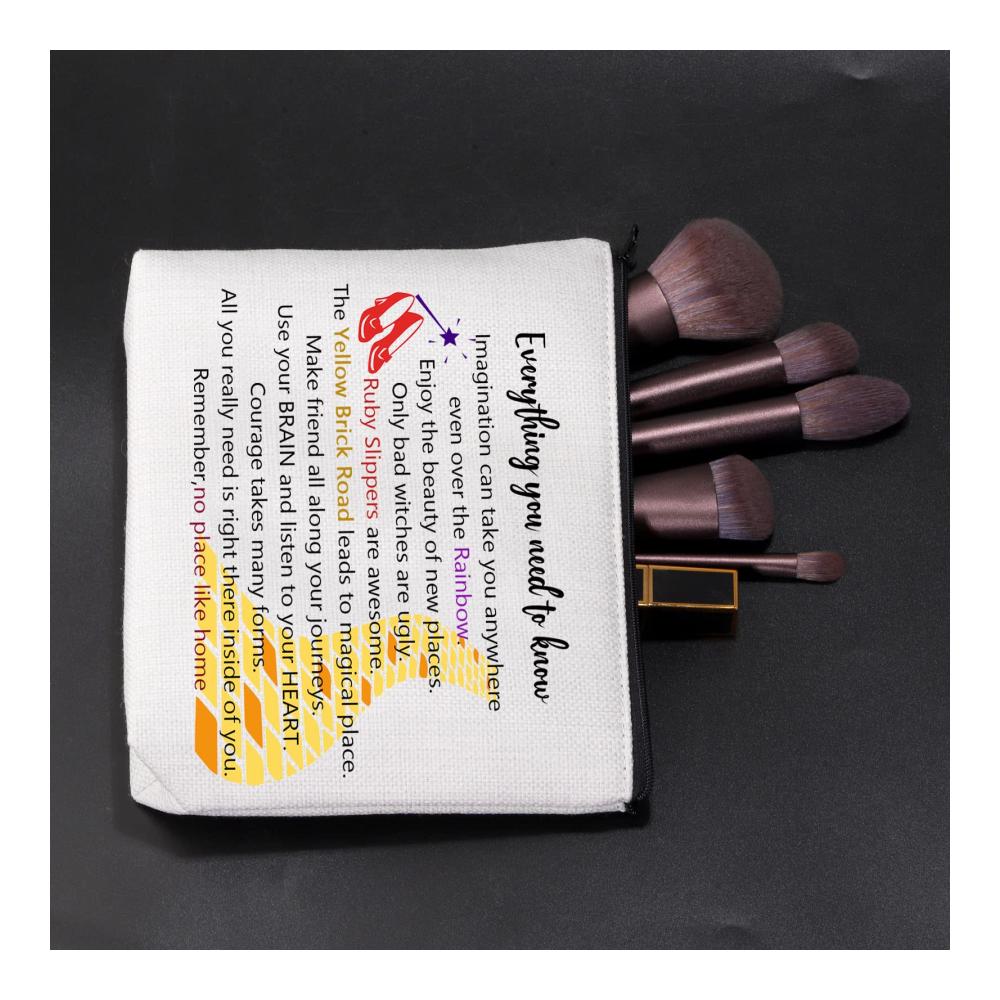 Everything you need to know
Imagination can take you anywhere
even over the Rainbow.
Enjoy the beauty of new places.
Only bad witches are ugly.
Ruby Slippers are awesome.
The Yellow Brick Road leads to magical place.
Make friend all along your journeys.
Use your BRAIN and listen to your HEART.
Courage takes many forms.
All you really need is right there inside of you.
Remember,no place like home